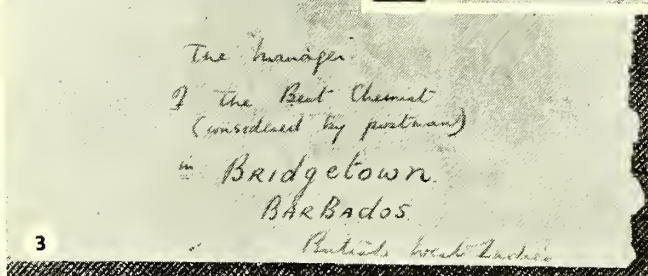 The Manager
of the Best Chemist
(considered by postman)
in Bridgetown.
BARBADOS.
British West Indies
3